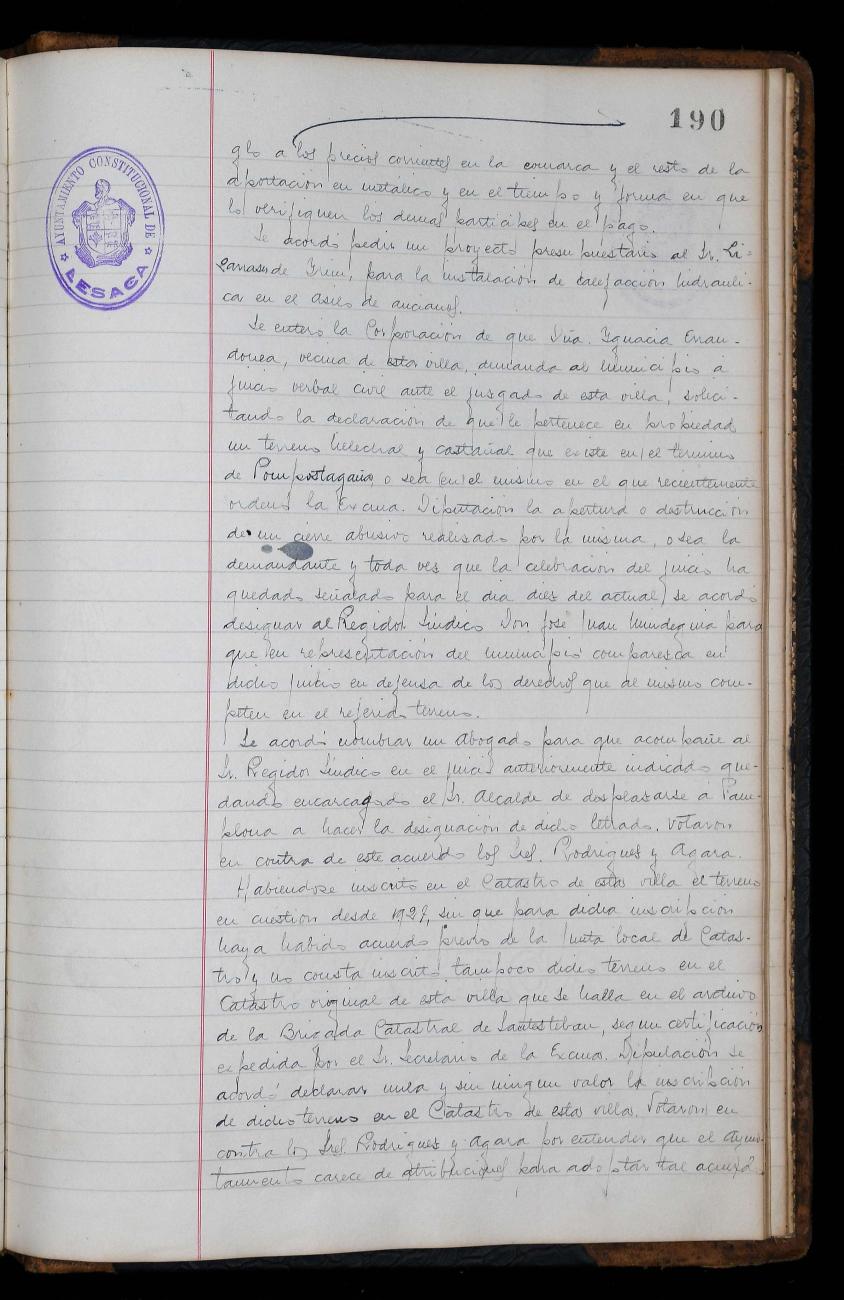 190
AYUNTAMIENTO CONSTITUCIONAL DE
LESACA
glo a los precios corrientes en la comarca y el resto de la
aportación en metálico y en el tiempo y forma en que
lo verifiquen los demas participes en el pago.
Se acordó pedir un proyecto presupuestario al Sr. Li-
de Irun, para la instalación de calefacción hidrauli-
ca en el asilo de ancianos.
Se enteró la Corporación de que Dña. Ignacia Erran-
donea, vecina de esta villa, demanda al municipio a
juicio verbal civil ante el juzgado de esta villa, solici-
tando la declaración de que le pertenece en propiedad
un terreno helechal y castañal que existe en el termino
de o sea en el mismo en el que recientemente
ordenó la Excma. Diputación la apertura o destrucción
de un cierre abusivo realisado por la misma, o sea la
demandante y toda ves que la celebración del juicio ha
quedado señalado para el dia dies del actual, se acordó
designar al Regidor Sindico Don José Juan Mindeguia para
que en representación del municipio comparesca en
dicho juicio en defensa de los derechos que al mismo com-
peten en el referido terreno.
Se acordó nombrar un abogado para que acompañe al
Sr. Regidor Sindico en el juicio anteriormente indicado que-
dando encarcagado el Sr. Alcalde de desplasarse a Pam-
plona a hacer la designación de dicho letrado. Votaron
en contra de este acuerdo los Sres. Rodrigues y Agara.
Habiendose inscrito en el Catastro de esta villa el terreno
en cuestion desde 1927, sin que para dicha inscripción
haya habido acuerdo previo de la Junta local de Catas-
tro y no consta inscrito tampoco dicho terreno en el
Catastro original de esta villa que se halla en el archivo
de la Brigada Catastral de Santesteban, segun certificación
expedida por el Sr. Secretario de la Excma. Diputación se
acordó declarar nula y sin ningun valor la inscripción
de dicho terreno en el Catastro de esta villa. Votaron en
contra los Sres. Rodrigues y Agara por entender que el Ayun-
tamiento carece de atribuciones para adoptar tal acuerdo.